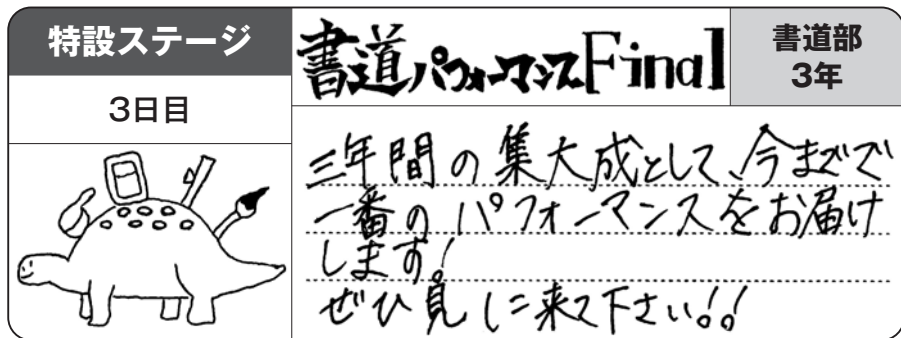 特設ステージ
3日目
書道パフォーマンスFinal
書道部
3年
三年間の集大成として、今までで
一番のパフォーマンスをお届け
します!
ぜひ見に来て下さい!!